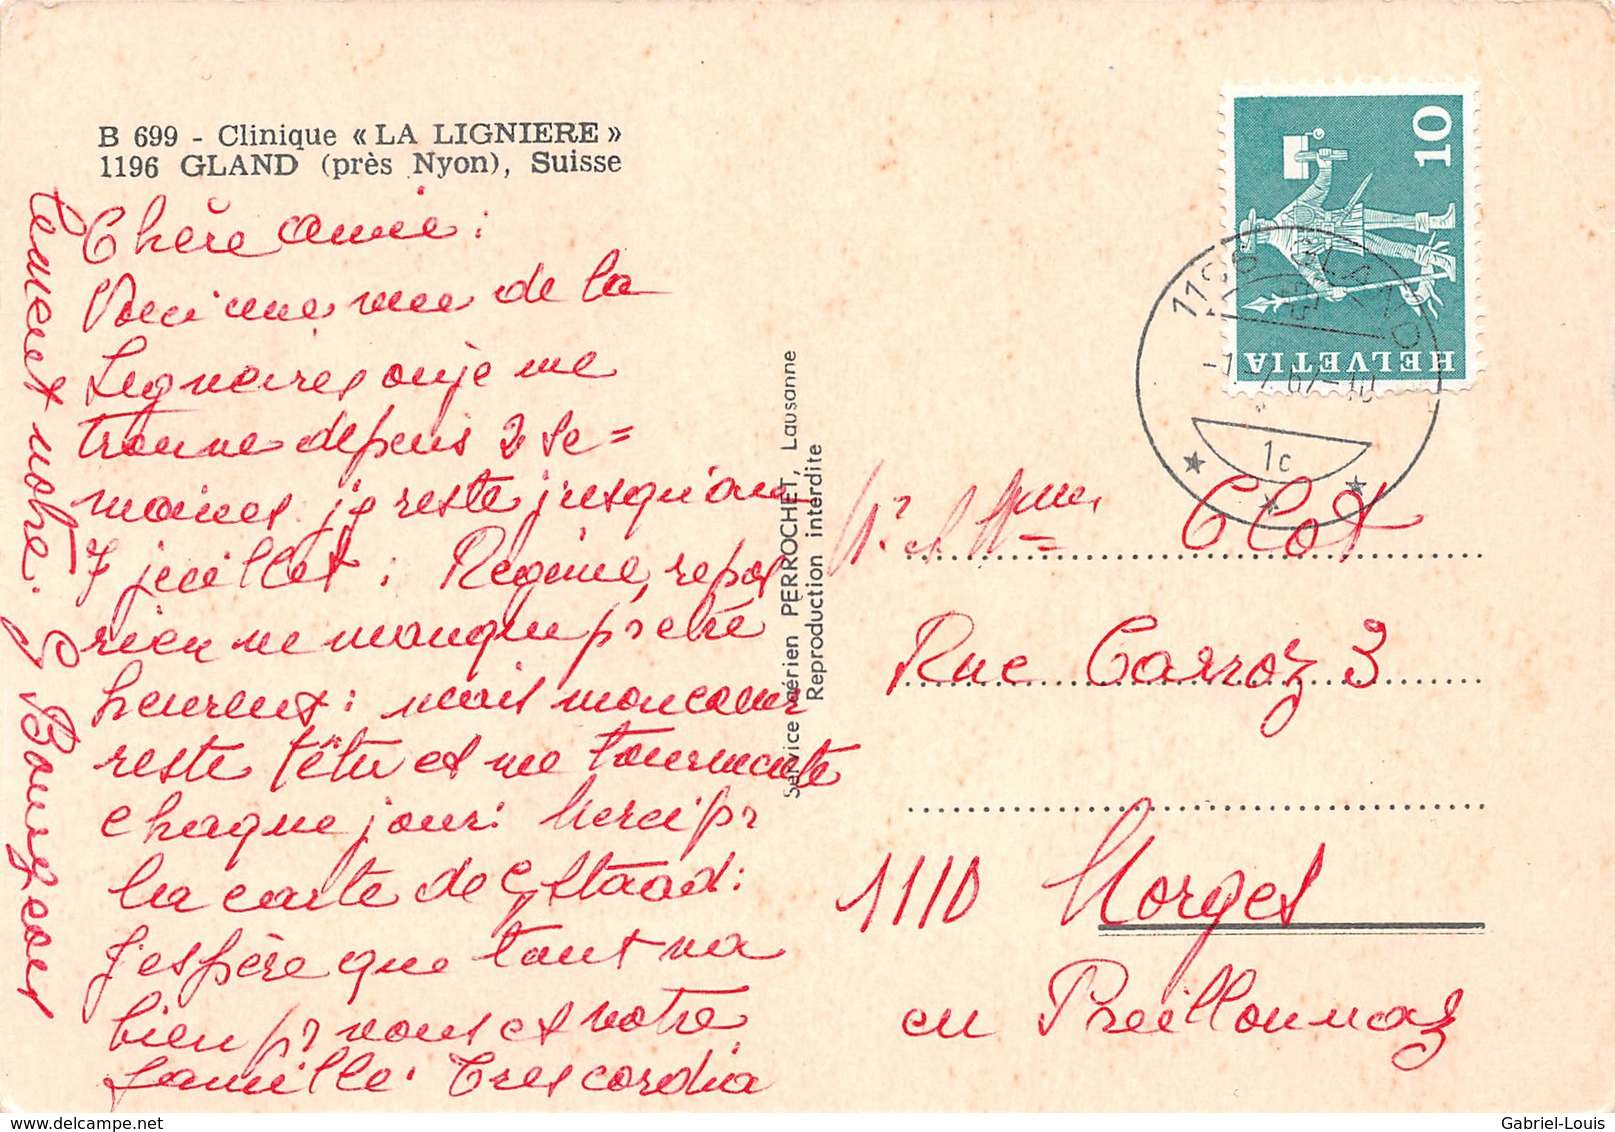 B 699 - Clinique « LA LIGNIERE »
1196 GLAND (près Nyon), Suisse
Chère amie :
Voici une vue de la
Lignières où je me
trouve depuis 2 se=
maines je reste jusqu'au
7 juillet : Régime, repos
rien ne manque pr être
heureux : mais mon cœur
reste têtu et me tourmente
chaque jour : Merci pr
la carte de Gstaad :
J'espère que tout va
bien pr vous et votre
famille. Très cordia
lement vôtre. G Bourgeois
Service aérien PERROCHET, Lausanne
Reproduction interdite
HELVETIA 10
1196 GLAND
-1.-7.67-10
1c
Mr et Mme Clot
Rue Carroz 3
1110 Morges
en Preillonnaz
Gabriel-Louis